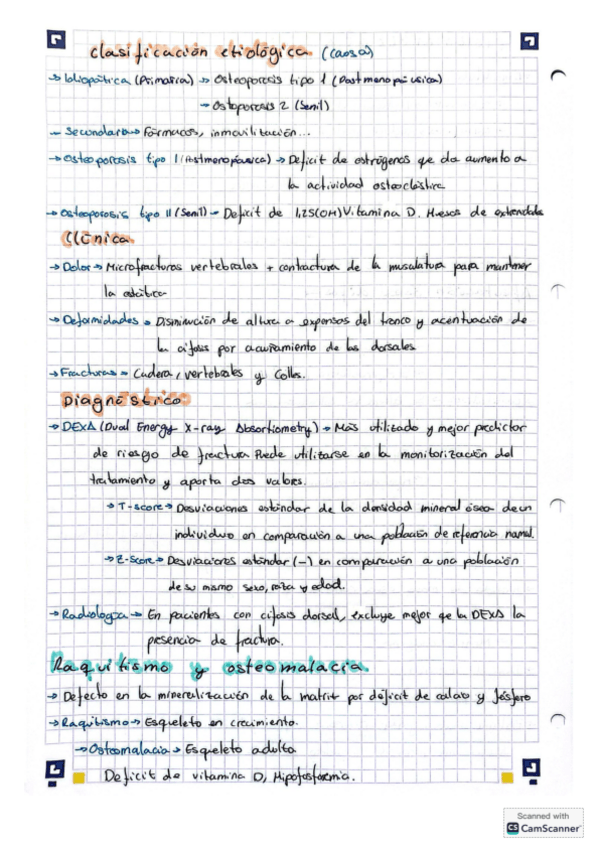 Clasificación etiológica (causa)
→ Idiopática (Primaria) → Osteoporosis tipo 1 (Postmenopáusica)
→ Osteoporosis 2 (Senil)
→ Secundaria → Fármacos, inmovilización...
→ Osteoporosis tipo I (Postmenopáusica) → Deficit de estrógenos que da aumento a
la actividad osteoclástica.
→ Osteoporosis tipo II (Senil) → Deficit de 1,25(OH) Vitamina D. Huesos de
Clínica
→ Dolor → Microfracturas vertebrales + contractura de la musculatura para mantener
la
→ Deformidades → Disminución de altura a expensas del tronco y acentuación de
la cifosis por acuñamiento de las dorsales
→ Fracturas → Cadera, vertebrales y Colles.
Diagnóstico
→ DEXA (Dual Energy X-ray Absortiometry) → Más utilizado y mejor predictor
de riesgo de fractura. Puede utilizarse en la monitorización del
tratamiento y aporta dos valores.
→ T-score → Desviaciones estándar de la densidad mineral ósea de un
individuo en comparación a una población de referencia normal.
→ Z-Score → Desviaciones estándar (-) en comparación a una población
de su mismo sexo, raza y edad.
→ Radiología → En pacientes con cifosis dorsal, excluye mejor que la DEXA la
presencia de fractura.
Raquitismo y osteomalacia.
→ Defecto en la mineralización de la matriz por déficit de calcio y fósforo
→ Raquitismo → Esqueleto en crecimiento.
→ Osteomalacia → Esqueleto adulto
Deficit de vitamina D, Hipofosforemia.
Scanned with
CS CamScanner